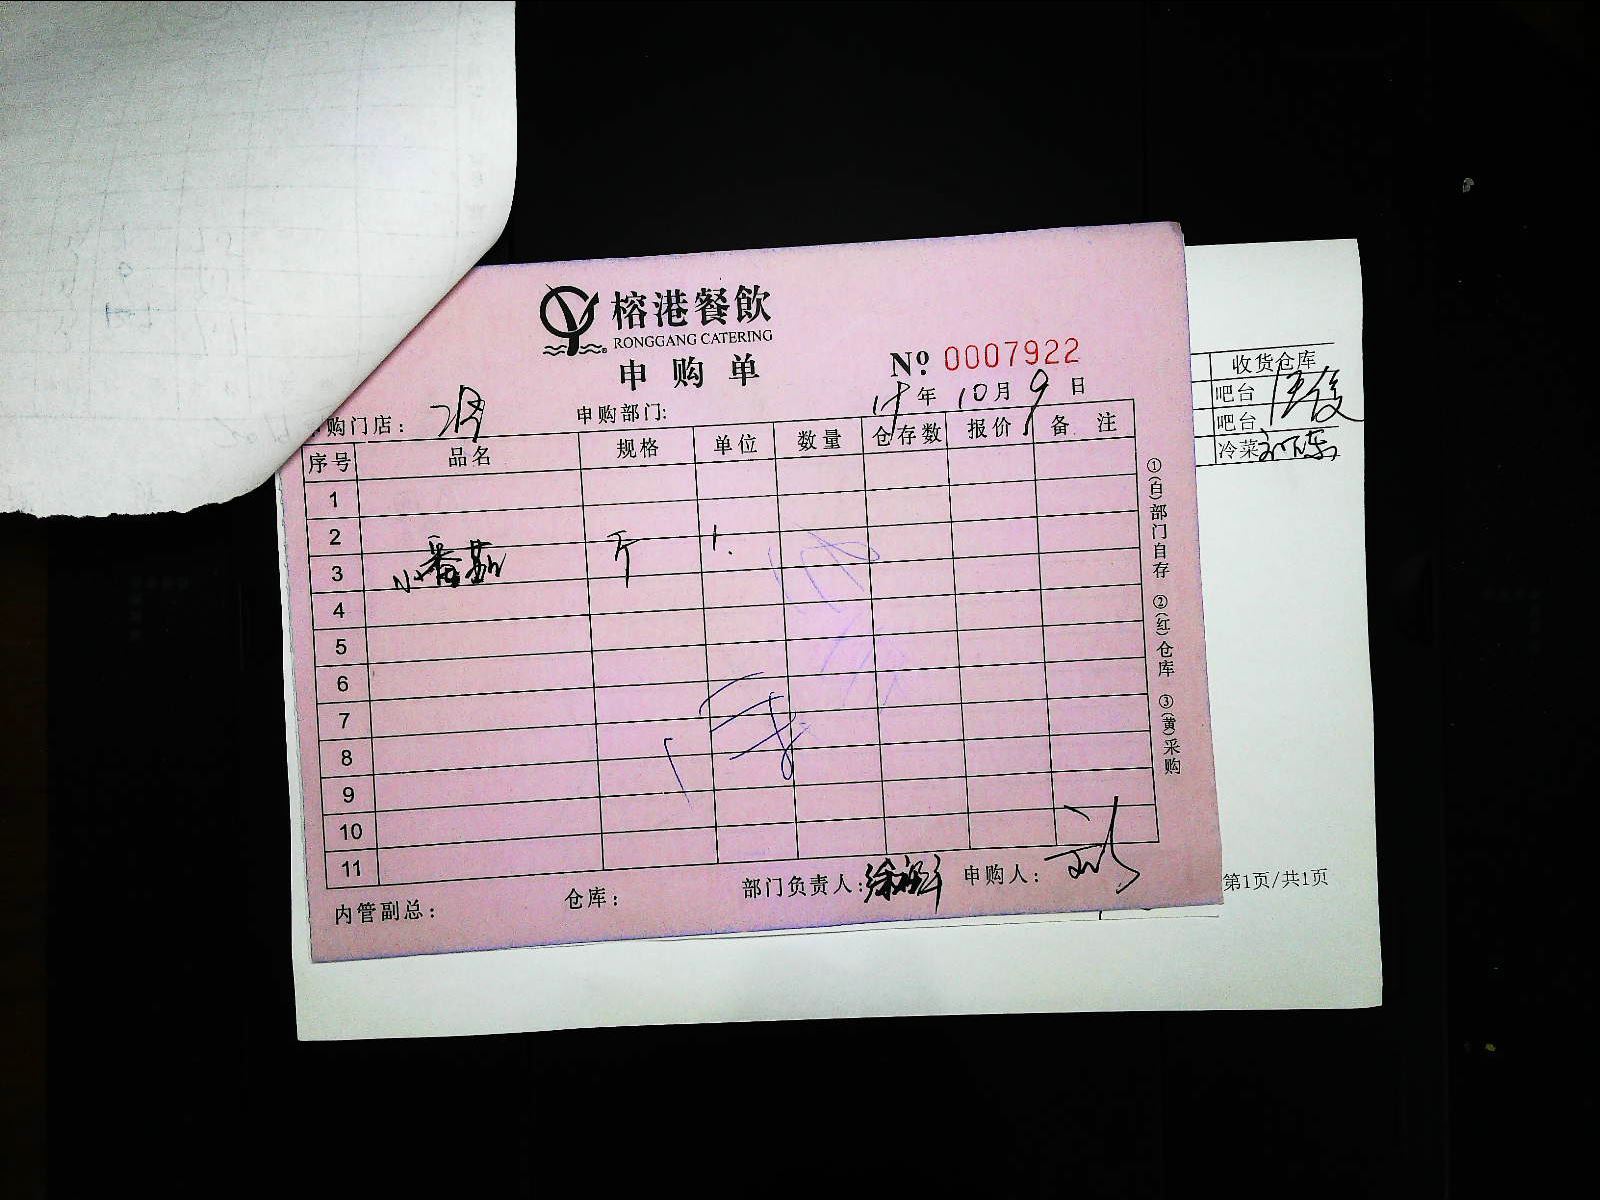 榕港餐飲
RONGGANG CATERING
申购单
№ 0007922
年 10月9日
购门店: 申购部门:
序号 品名 规格 单位 数量 仓存数 报价 备注
1
2
3 小番茄 斤 1.
4
5
6
7
8
9
10
11
内管副总: 仓库: 部门负责人: 申购人:
①(白)部门自存 ②(红)仓库 ③(黄)采购
收货仓库
吧台
吧台
冷菜
第1页/共1页